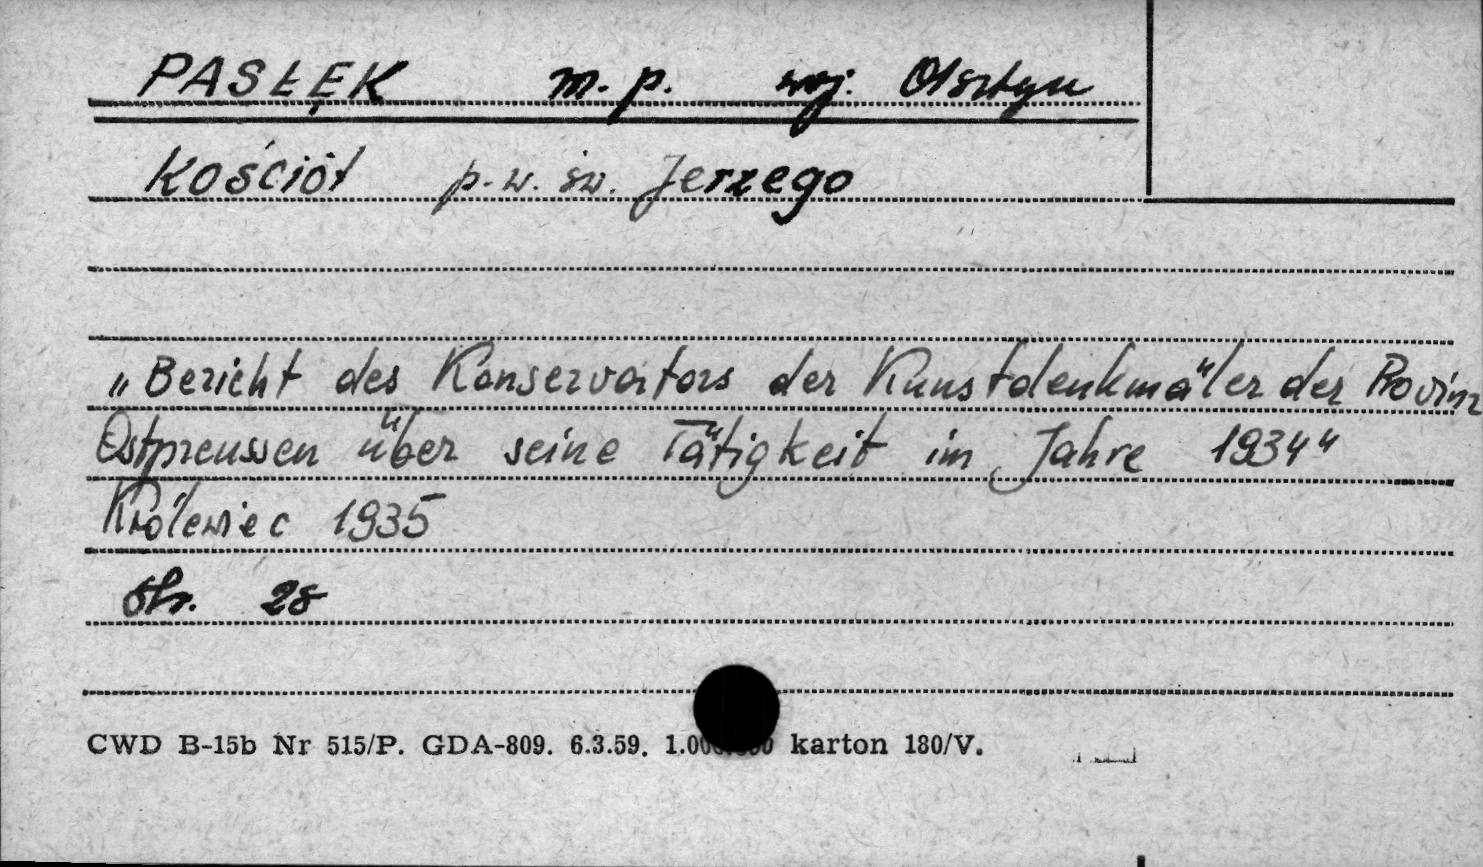 PASŁĘK m. p. woj. Olsztyn
Kościół p.w. św. Jerzego
„Bericht des Konservators der Kunstdenkmäler der Provinz
Ostpreussen über seine Tätigkeit im Jahre 1934"
Królewiec 1935
str. 28
CWD B-15b Nr 515/P. GDA-809. 6.3.59. karton 180/V.